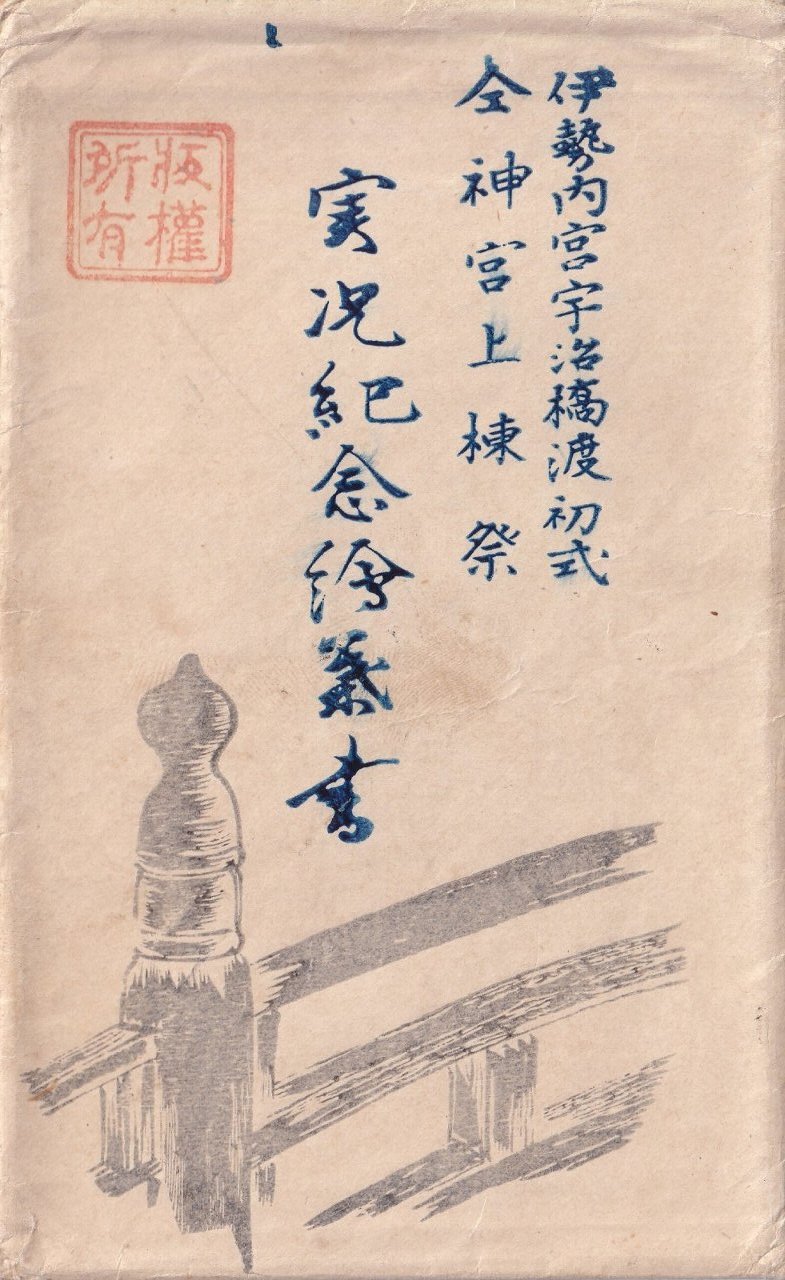 伊勢内宮宇治橋渡初式
仝神宮上棟祭
実况紀念繪葉書
版權
所有